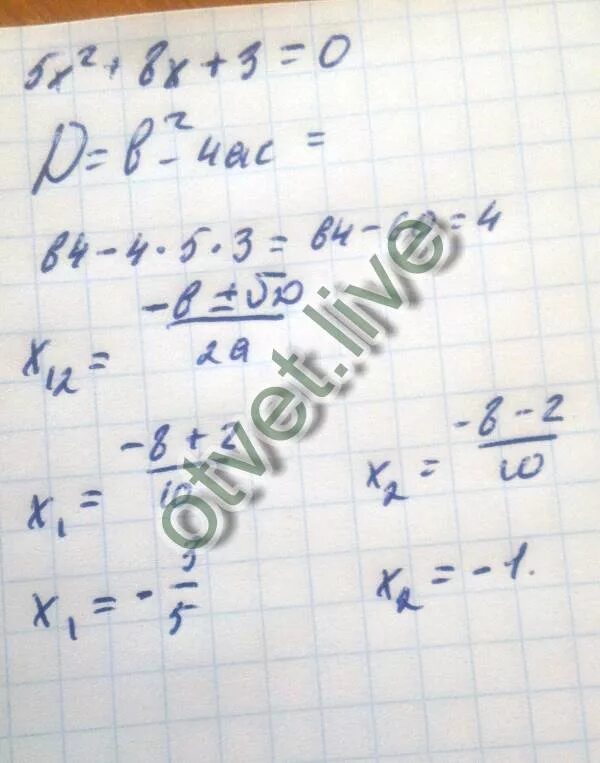 5x² + 8x + 3 = 0
D = b² - 4ac =
64 - 4 · 5 · 3 = 64 - 60 = 4
x₁₂ = (-b ± √D) / 2a
x₁ = (-8 + 2) / 10
x₂ = (-8 - 2) / 10
x₁ = - 3/5
x₂ = -1.
otvet.live